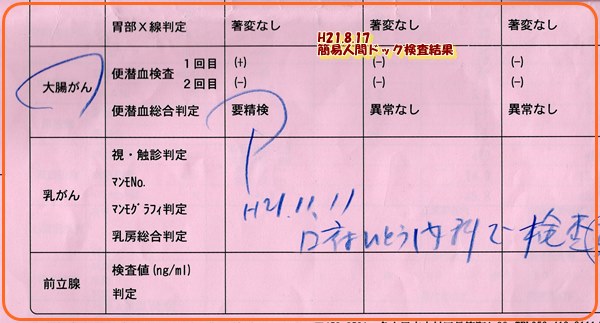 胃部X線判定 著変なし 著変なし 著変なし
H21.8.17
簡易人間ドック検査結果
大腸がん 便潜血検査 1回目 (+) (-) (-)
2回目 (-) (-) (-)
便潜血総合判定 要精検 異常なし 異常なし
乳がん 視・触診判定
マンモNo.
マンモグラフィ判定
乳房総合判定
H21.11.11
いとう内科で検査
前立腺 検査値(ng/ml)
判定